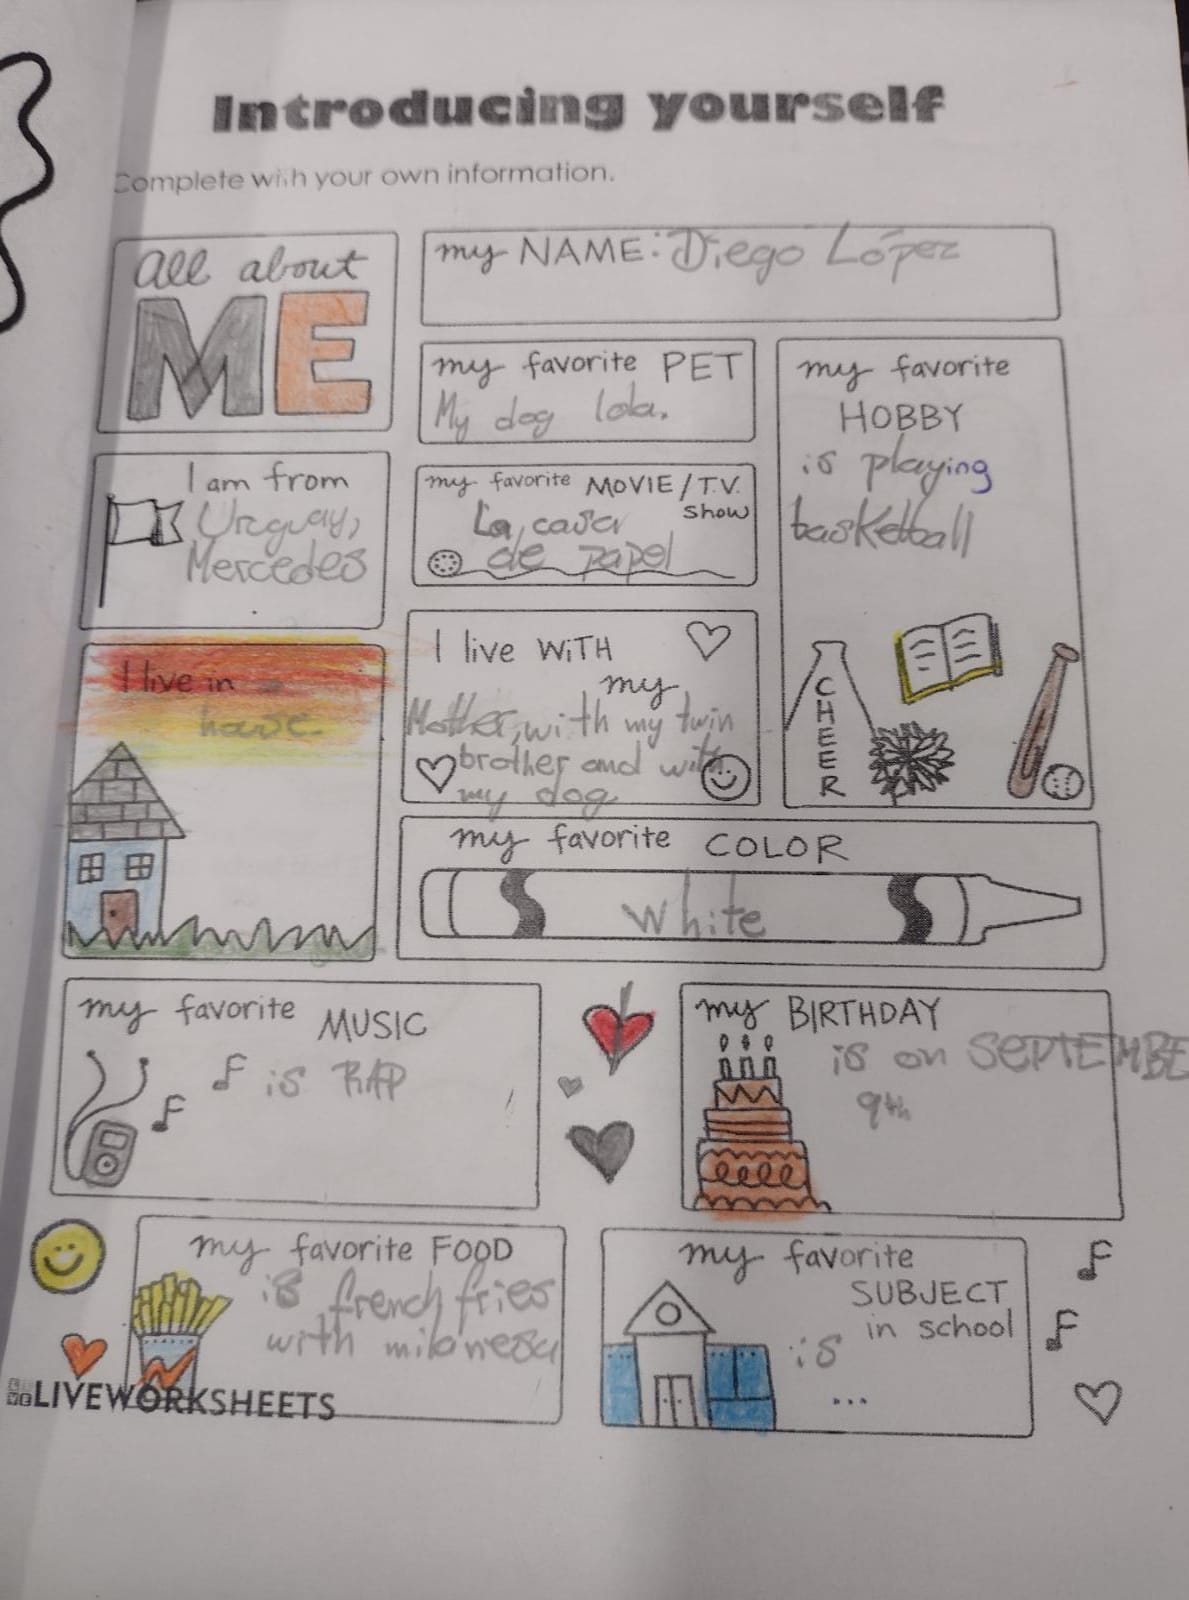 Introducing yourself
Complete with your own information.
all about
ME
my NAME: Diego López
my favorite PET
My dog lola.
my favorite
HOBBY
is playing
basketball
I am from
Uruguay,
Mercedes
my favorite MOVIE/T.V.
show
La casa
de papel
I live in
house.
I live WiTH
my
Mother, with my twin
brother and with
my dog
CHEER
my favorite COLOR
White
my favorite MUSIC
is RAP
my BIRTHDAY
is on SEPTEMBE
9th
my favorite FOOD
is french fries
with milanesa
my favorite
SUBJECT
in school
is
...
LIVEWORKSHEETS